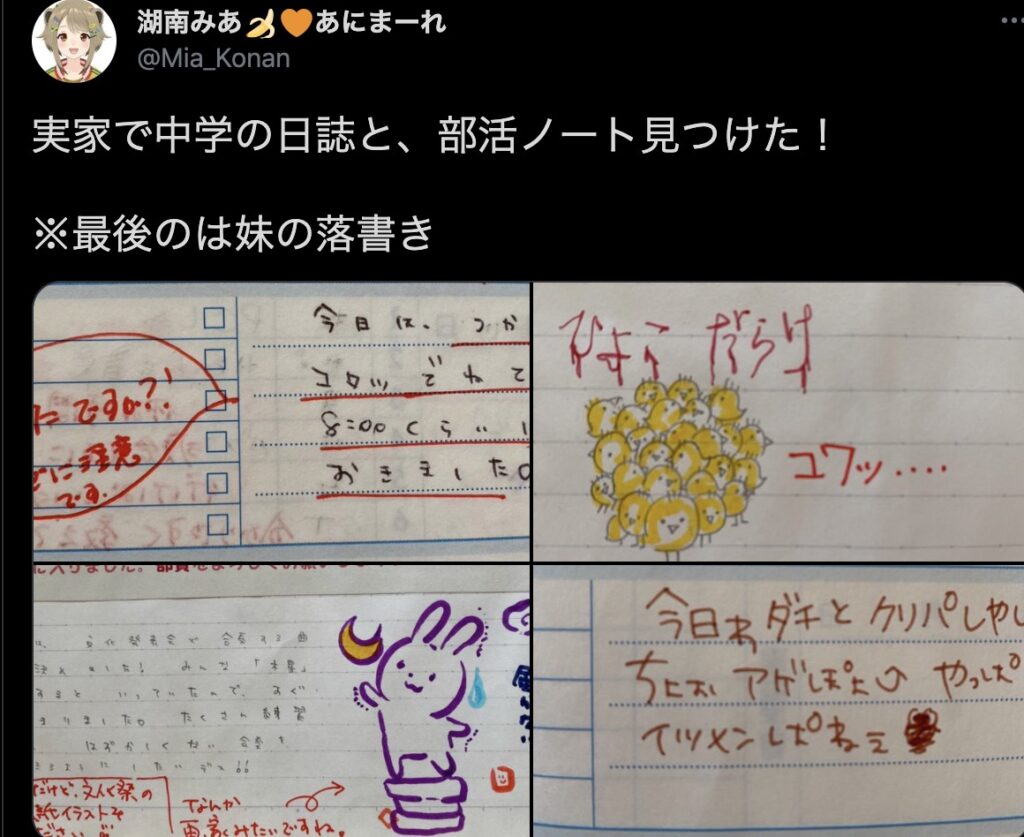 湖南みあ🍌🧡あにまーれ
@Mia_Konan
実家で中学の日誌と、部活ノート見つけた！
※最後のは妹の落書き
ですか?!
に注意
です.
今日は、つか
コタツでねて
8:00くらいに
おきました
ひよこだらけ
コワッ‥‥
文化発表会で合奏する曲
決めました! みんな「木星」
すると いっていたので、すぐ
まりました。 たくさん練習
はずかしくない 合奏を
きるように したいデス!!
だけど、文化祭の
紙イラストを
ださい。
なんか
画家みたいですね。
今日わダチとクリパしやし
ちょぉアゲぽよ〜 やっぱ
イツメンしぱねぇ